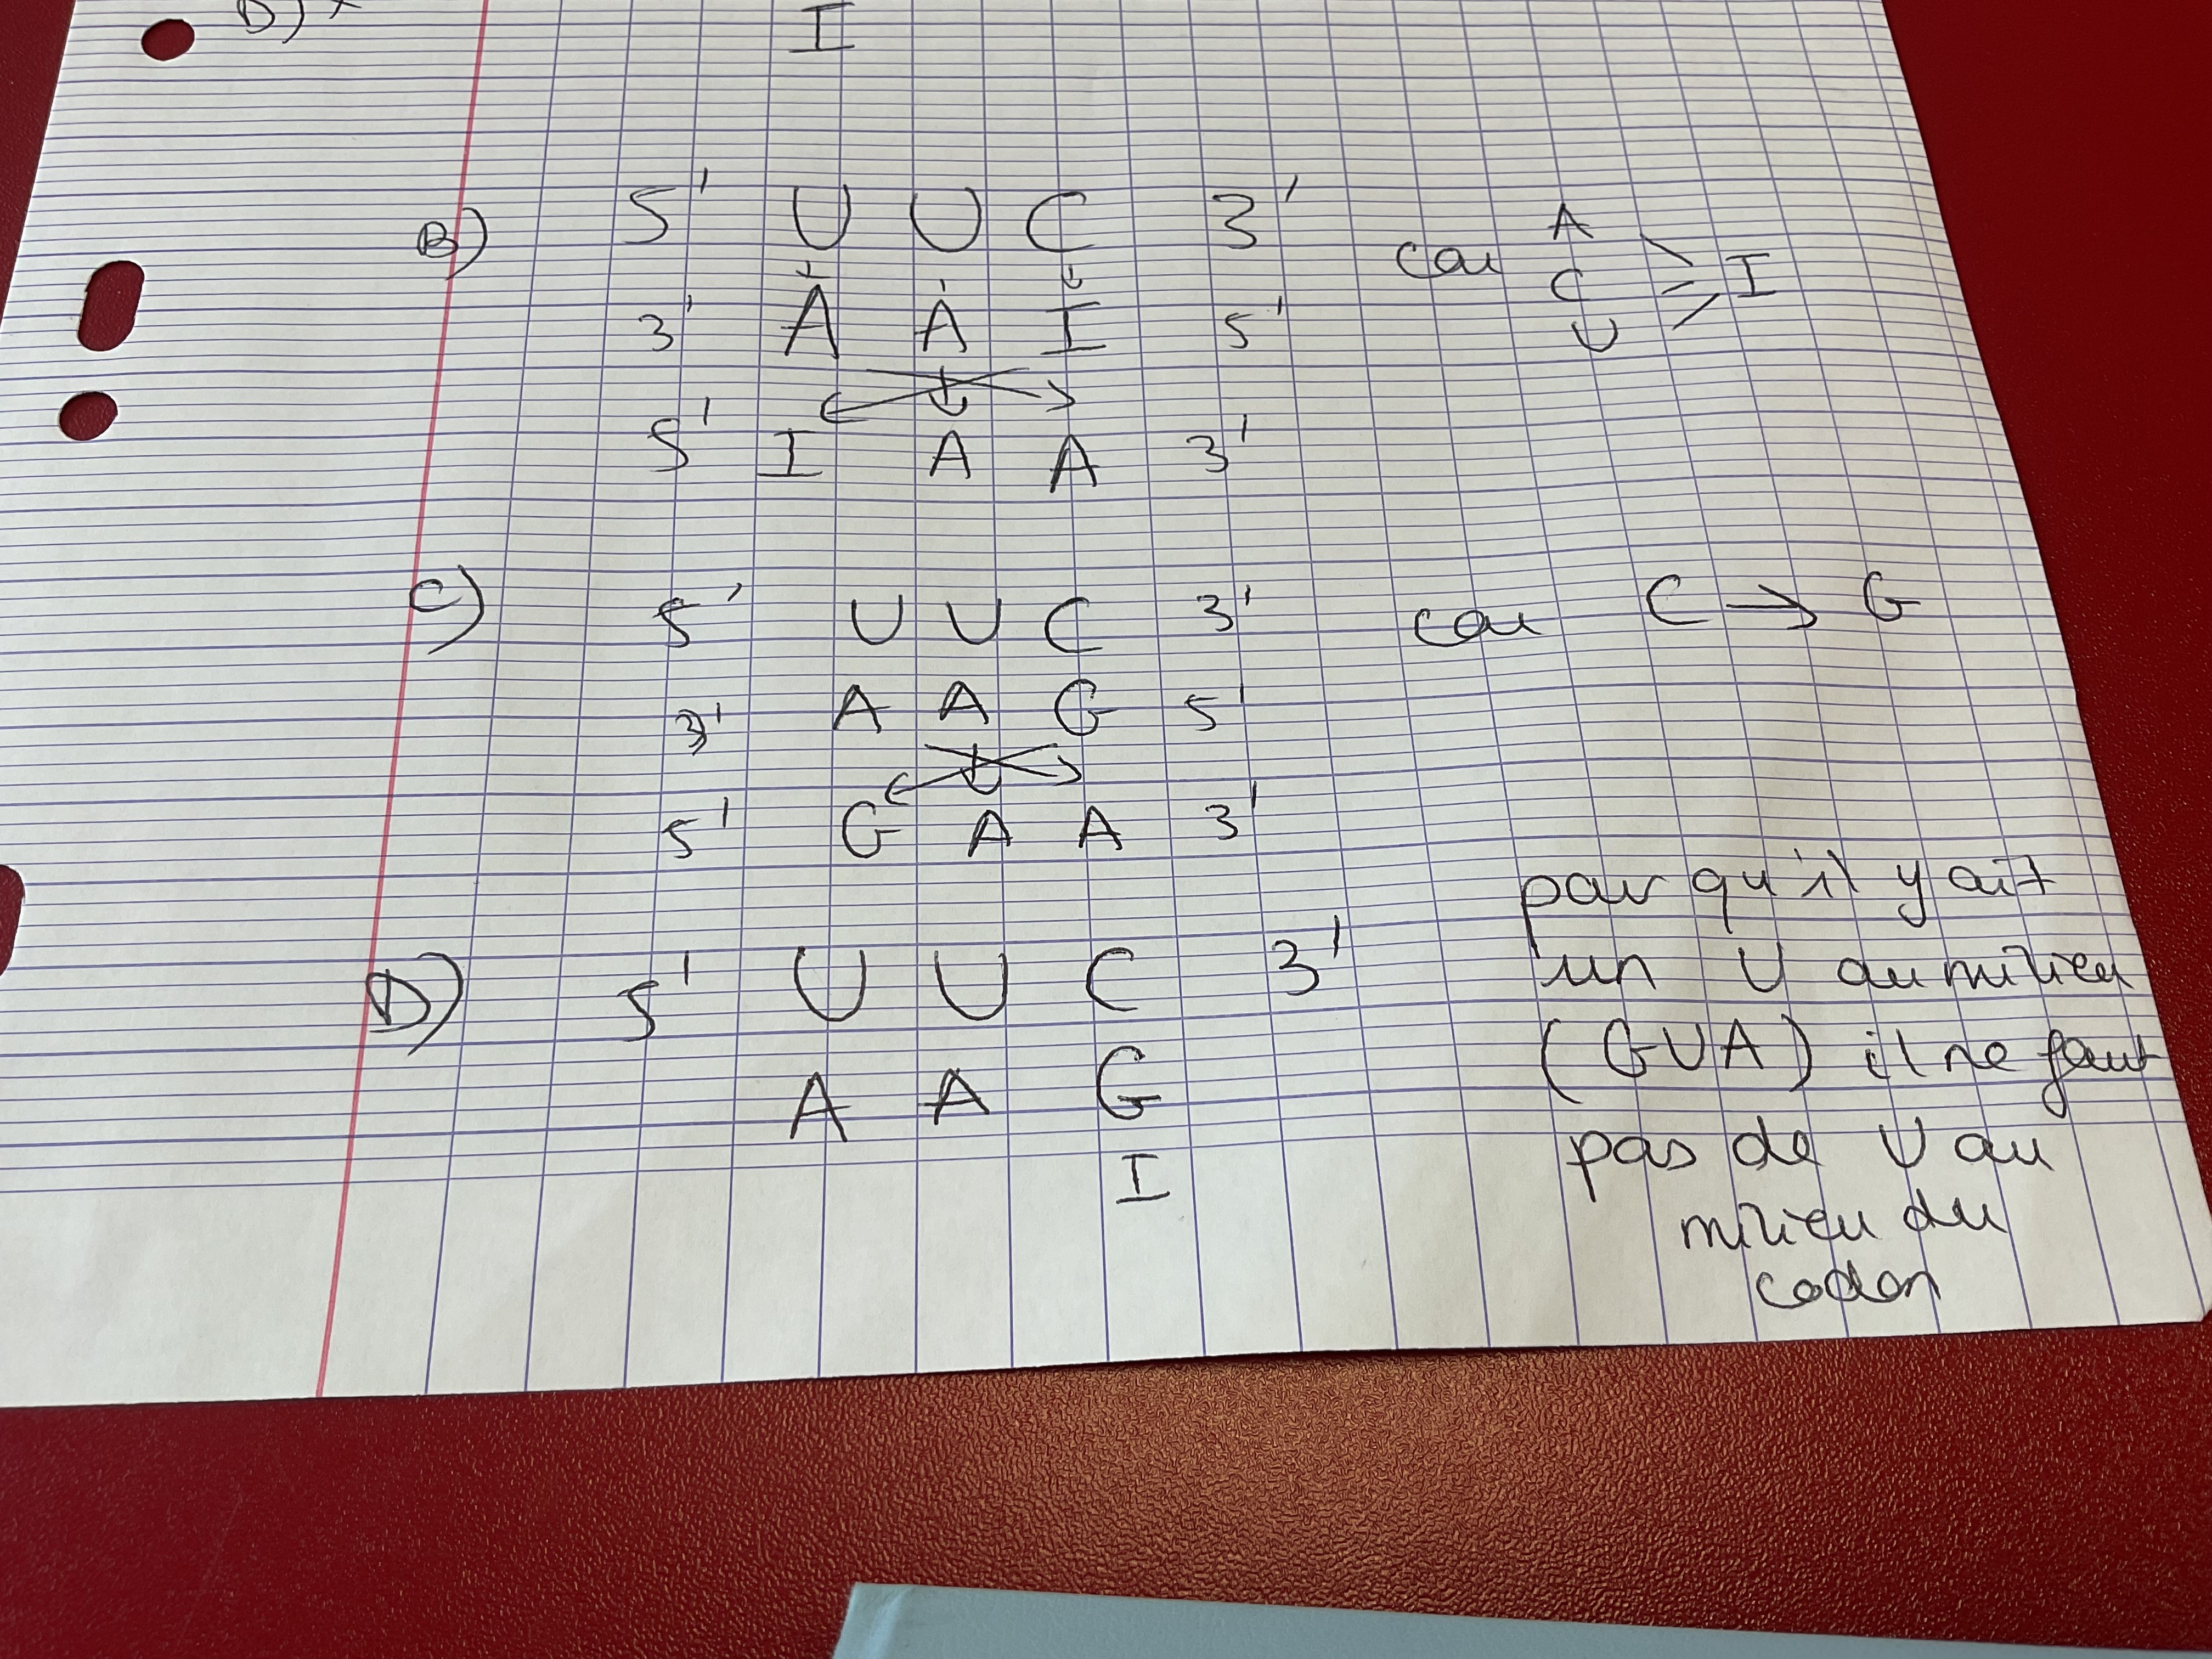 D)
I
B) 5' U U C 3' car A
C I
U
3' A A I 5'
5' I A A 3'
C) 5' U U C 3' car C → G
3' A A G 5'
5' G A A 3'
D) 5' U U C 3'
A A G
I
pour qu'il y ait
un U au milieu
(GUA) il ne faut
pas de U au
milieu du
codon